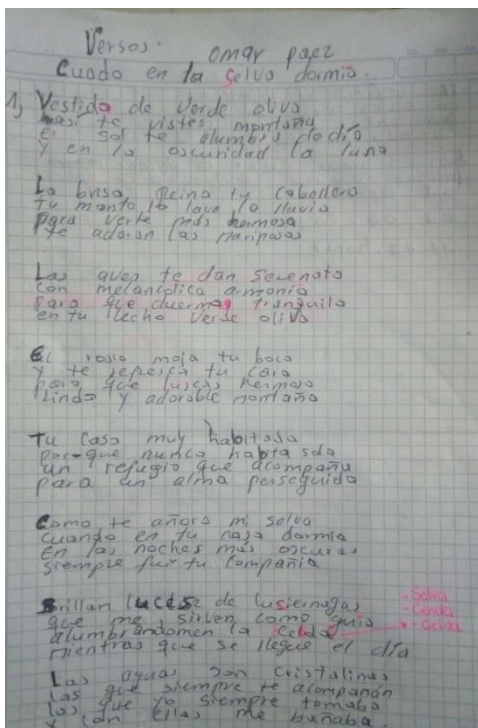 Versos. omar paez
Cuado en la selva dormia.
1) Vestida de verde oliva
asi te vistes montaña
El sol te alumbra de día
y en la oscuridad la luna
La brisa Peina tu Cabellera
tu manto lo lava la lluvia
para verte más hermosa
te adoran las mariposas
Las aves te dan serenata
con melancolica armonia
para que duermas tranquila
en tu lecho verde olivo
El rosio moja tu boca
y te refresca tu cara
para que luscas hermosa
linda y adorable montaña
Tu casa muy habitada
por-que nunca habita sola
un refugio que acompaña
para un alma perseguida
Como te añoro mi selva
cuando en tu casa dormia
En las noches más oscuras
siempre fui tu compañia
Brillan luces de lusiernagas
que me sirven como guia
alumbrandomen la Celda
mientras que se llegue el día
- Selva
- Cenda
- Celda
Las aguas son cristalinas
las que siempre te acompañan
las que yo siempre tomaba
y con ellas me bañaba.